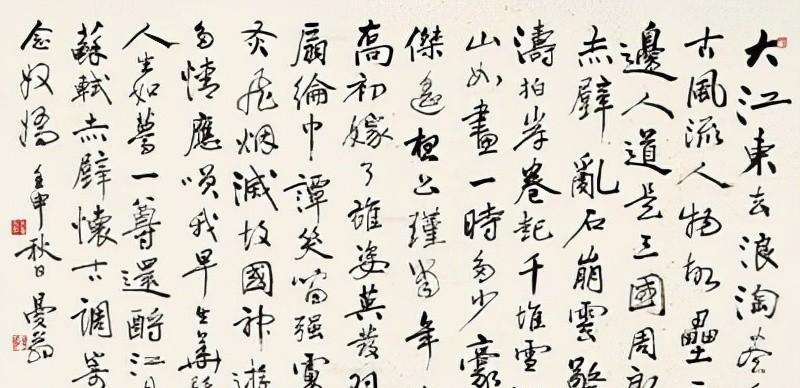 大江東去浪淘盡
古風流人物故壘
邊人道是三國周郎
赤壁亂石崩雲
濤拍岸卷起千堆雪
山如畫一時多少豪
傑遙想公瑾當年
高初嫁了雄姿英發羽
扇綸巾譚笑間强虜
灰飛烟滅故國神遊
多情應笑我早生華
人生如夢一尊還酹江月
蘇軾赤壁懷古調寄
念奴嬌 壬申秋日曼翁